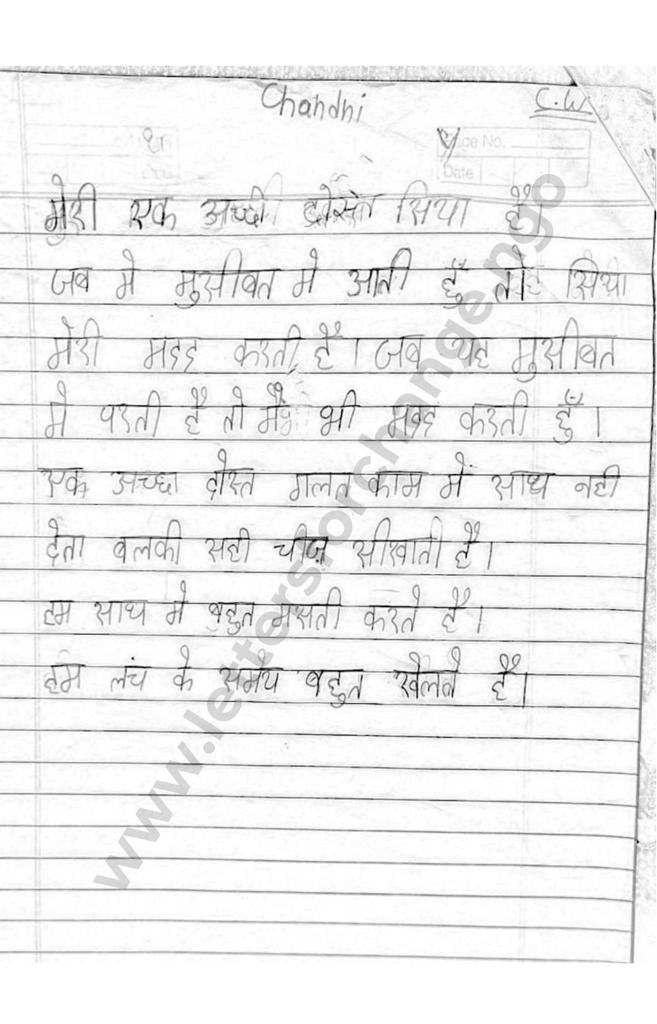 Chandhi C.W
Page No.
Date
मेरी एक अच्छी दोस्त सिया है
जब मे मुसीबत मे आती हूँ तो सिया
मेरी मदद करती है । जब यह मुसीबत
मे परती है तो मै भी मदद करती हूँ ।
एक अच्छा दोस्त गलत काम में साथ नही
देता बलकी सही चीज़ सीखाती है ।
हम साथ मे बहुत मसती करते है ।
हम लंच के समय बहुत खेलते है ।
www.lettersforchange.ngo